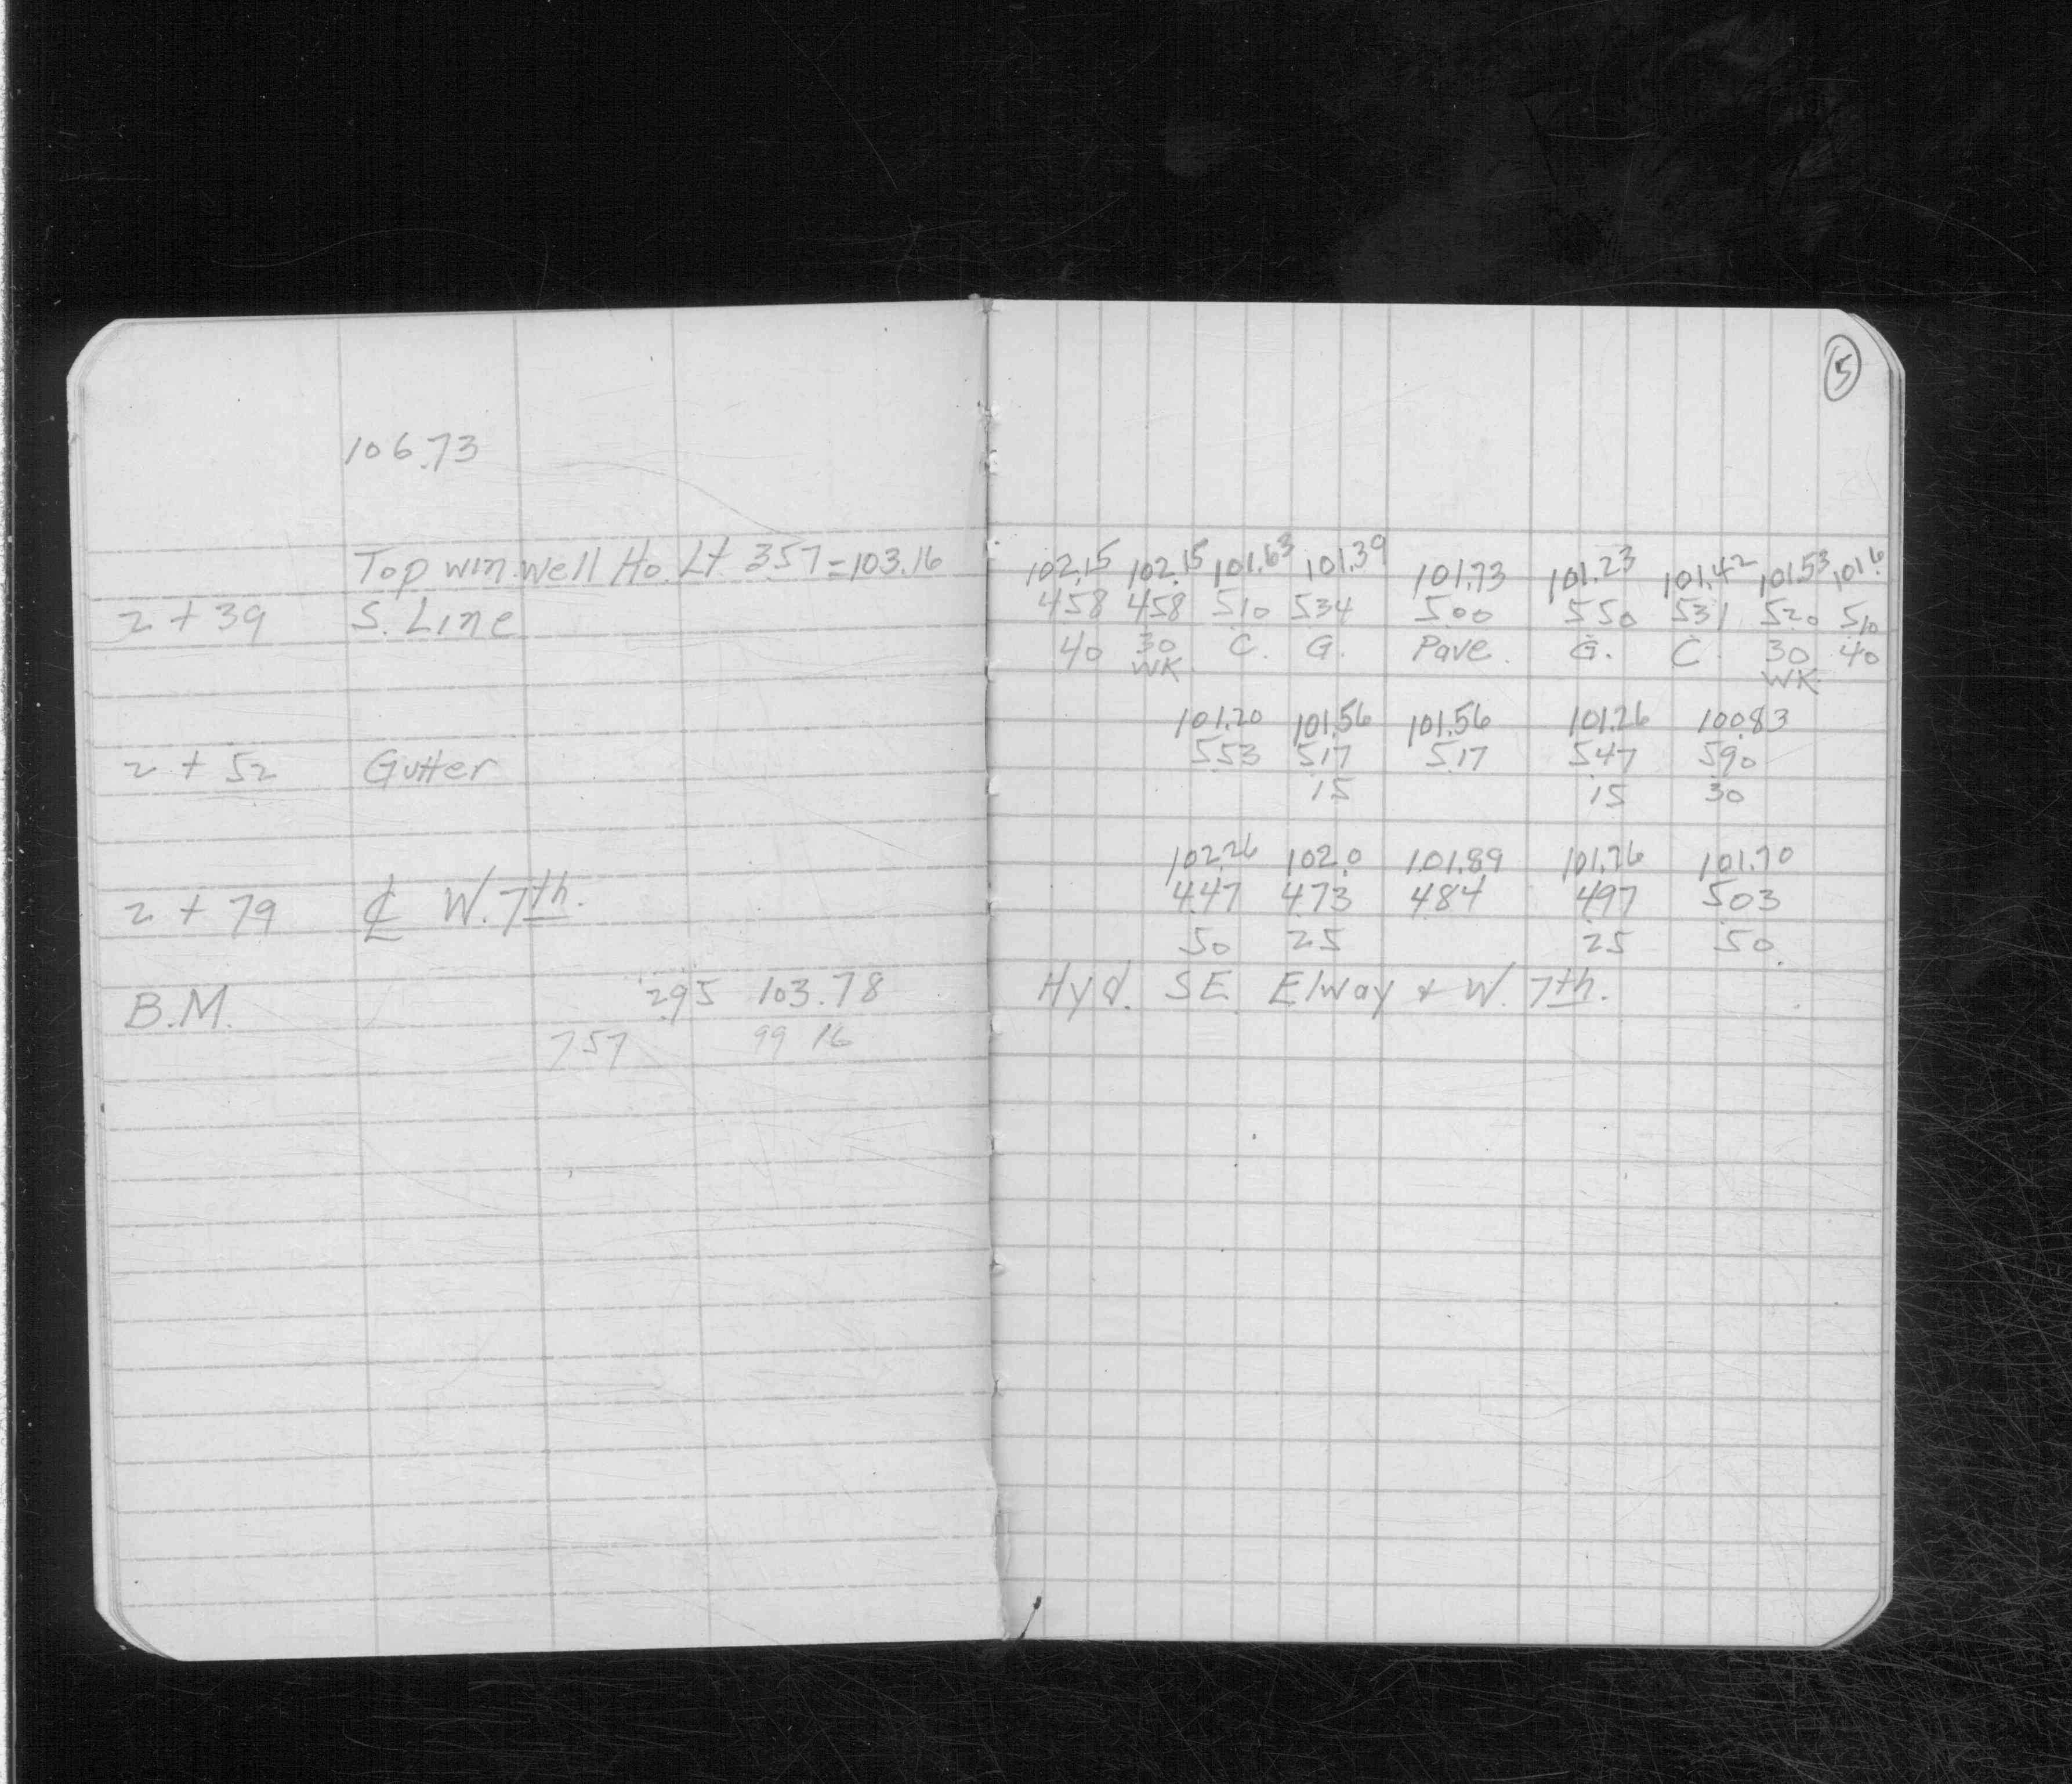 106.73
Top win.well Ho. Lt. 3.57 = 103.16
2 + 39 S. Line
2 + 52 Gutter
2 + 79 ℄ W. 7th.
B.M. 2.95 103.78
7 57 99 16
5
102.15 102.15 101.63 101.39 101.73 101.23 101.42 101.53 101.6
4.58 4.58 5.10 5.34 5.00 5.50 5.31 5.20 5.10
40 30 C. G. Pave. G. C. 30 40
WK WK.
101.20 101.56 101.56 101.26 100.83
5.53 5.17 5.17 5.47 5.90
15 15 30
102.26 102.0 101.89 101.76 101.70
4.47 4.73 4.84 4.97 5.03
50 25 25 50.
Hyd. SE. Elway & W. 7th.